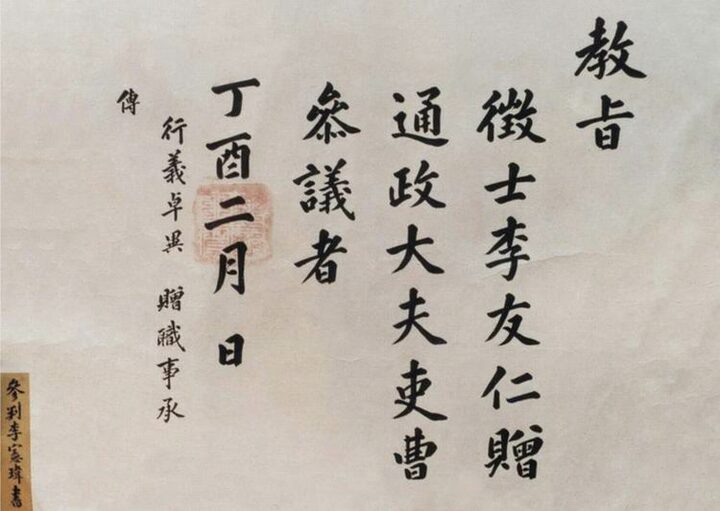 教旨
徵士李友仁贈
通政大夫吏曹
參議者
丁酉二月 日
行義卓異 贈職事承
傳
參判李憲瑋書